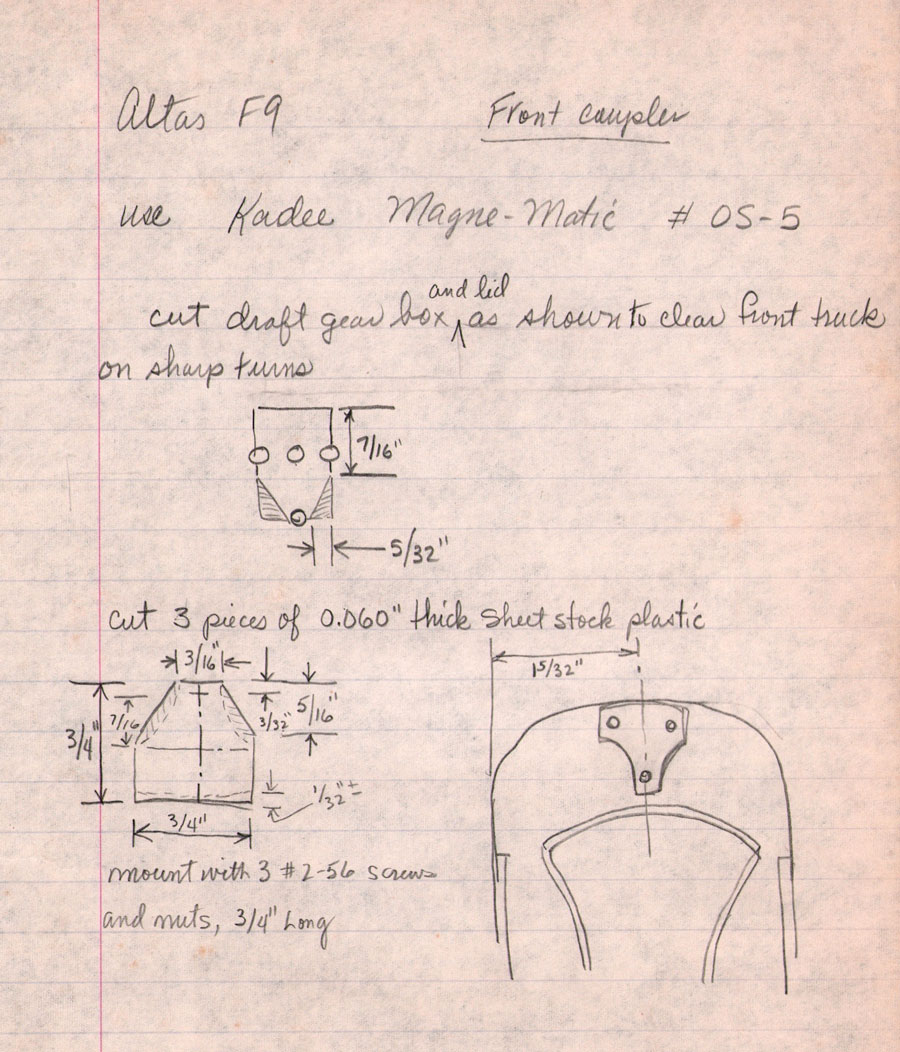 Altas F9
Front coupler
use Kadee Magne-Matic # OS-5
and lid
cut draft gear box as shown to clear front truck
on sharp turns
7/16"
5/32"
cut 3 pieces of 0.060" thick sheet stock plastic
3/16"
15/32"
7/16
3/32"
5/16"
3/4"
1/32" ±
3/4"
mount with 3 #2-56 screws
and nuts, 3/4" Long